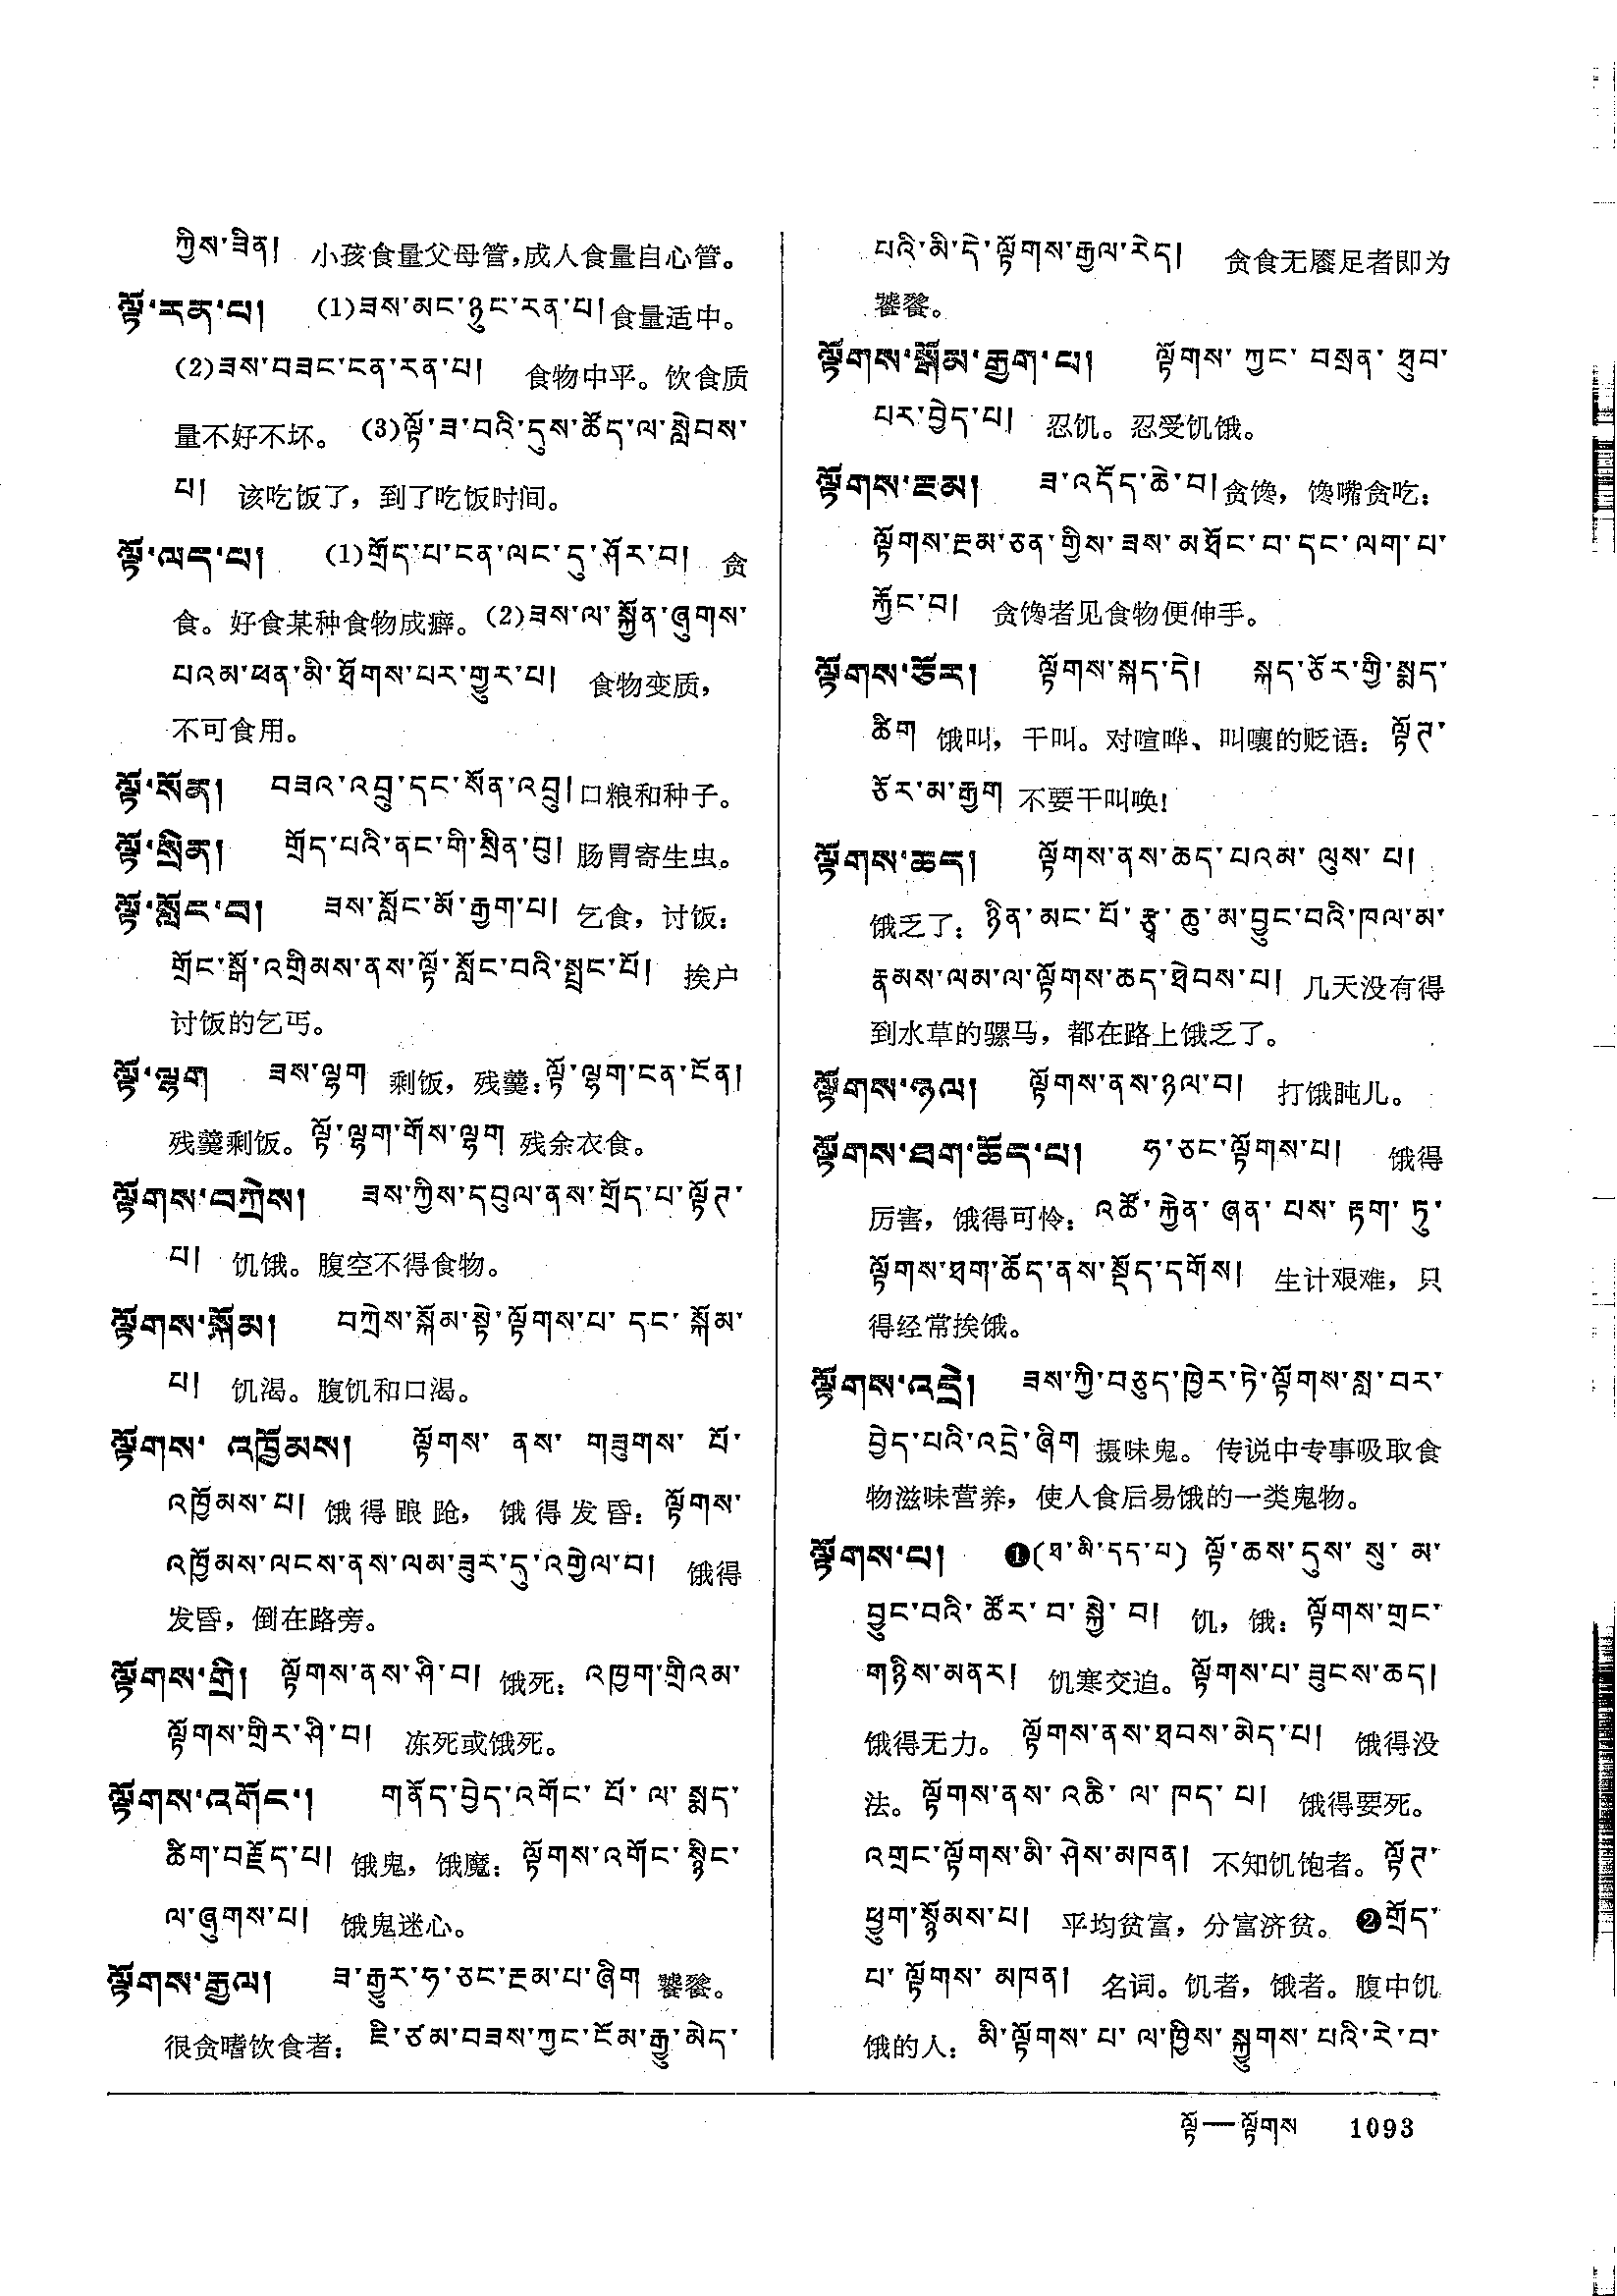 ཀྱིས་ཟིན། 小孩食量父母管,成人食量自心管。
ལྟོ་རན་པ། (1)ཟས་མང་ཉུང་རན་པ།食量适中。
(2)ཟས་བཟང་ངན་རན་པ། 食物中平。饮食质
量不好不坏。(3)ལྟོ་ཟ་བའི་དུས་ཚོད་ལ་སླེབས་
པ། 该吃饭了，到了吃饭时间。
ལྟོ་ལད་པ། (1)གྲོད་པ་ངན་ལང་དུ་ཤོར་བ། 贪
食。好食某种食物成癖。(2)ཟས་ལ་སྐྱོན་ཞུགས་
པའམ་ཕན་མི་ཐོགས་པར་གྱུར་པ། 食物变质，
不可食用。
ལྟོ་སོན། བཟའ་འབྲུ་དང་སོན་འབྲུ།口粮和种子。
ལྟོ་སྲིན། གྲོད་པའི་ནང་གི་སྲིན་བུ། 肠胃寄生虫。
ལྟོ་སློང་བ། ཟས་སློང་མོ་རྒྱག་པ། 乞食，讨饭：
གྲོང་སྒོ་འགྲིམས་ནས་ལྟོ་སློང་བའི་སྤྲང་པོ། 挨户
讨饭的乞丐。
ལྟོ་ལྷག ཟས་ལྷག 剩饭，残羹：ལྟོ་ལྷག་ངན་ངོན།
残羹剩饭。ལྟོ་ལྷག་གོས་ལྷག 残余衣食。
ལྟོགས་བཀྲེས། ཟས་ཀྱིས་དབུལ་ནས་གྲོད་པ་ལྟོཊ་
པ། 饥饿。腹空不得食物。
ལྟོགས་སྐོམ། བཀྲེས་སྐོམ་སྟེ་ལྟོགས་པ་དང་སྐོམ་
པ། 饥渴。腹饥和口渴。
ལྟོགས་འཁྱོམས། ལྟོགས་ནས་གཟུགས་པོ་
འཁྱོམས་པ། 饿得踉跄，饿得发昏：ལྟོགས་
འཁྱོམས་ལངས་ནས་ལམ་ཟུར་དུ་འགྱེལ་བ། 饿得
发昏，倒在路旁。
ལྟོགས་གྲི། ལྟོགས་ནས་ཤི་བ། 饿死：འཁྱག་གྲིའམ་
ལྟོགས་གྲིར་ཤི་བ། 冻死或饿死。
ལྟོགས་འགོང་། གནོད་བྱེད་འགོང་པོ་ལ་སྨད་
ཚིག་བརྗོད་པ། 饿鬼，饿魔：ལྟོགས་འགོང་སྙིང་
ལ་ཞུགས་པ། 饿鬼迷心。
ལྟོགས་རྒྱལ། ཟ་རྒྱུར་ཧ་ཅང་རྔམ་པ་ཞིག 饕餮。
很贪嗜饮食者：ཇི་ཙམ་བཟས་ཀྱང་ངོམ་རྒྱུ་མེད་
པའི་མི་དེ་ལྟོགས་རྒྱལ་རེད། 贪食无餍足者即为
饕餮。
ལྟོགས་སྒོམ་རྒྱག་པ། ལྟོགས་ཀྱང་བསྲན་ཐུབ་
པར་བྱེད་པ། 忍饥。忍受饥饿。
ལྟོགས་རྔམ། ཟ་འདོད་ཆེ་བ།贪馋，馋嘴贪吃：
ལྟོགས་རྔམ་ཅན་གྱིས་ཟས་མཐོང་བ་དང་ལག་པ་
རྐྱོང་བ། 贪馋者见食物便伸手。
ལྟོགས་ཅོར། ལྟོགས་སྐད་དེ། སྐད་ཅོར་གྱི་སྨད་
ཚིག 饿叫，干叫。对喧哗、叫嚷的贬语：ལྟོཊ་
ཅོར་མ་རྒྱག 不要干叫唤!
ལྟོགས་ཆད། ལྟོགས་ནས་ཆད་པའམ་ལུས་པ།
饿乏了：ཉིན་མང་པོ་རྩྭ་ཆུ་མ་བྱུང་བའི་ཁལ་མ་
རྣམས་ལམ་ལ་ལྟོགས་ཆད་ཐེབས་པ། 几天没有得
到水草的骡马，都在路上饿乏了。
ལྟོགས་ཉལ། ལྟོགས་ནས་ཉལ་བ། 打饿盹儿。
ལྟོགས་ཐག་ཆོད་པ། ཧ་ཅང་ལྟོགས་པ། 饿得
厉害，饿得可怜：འཚོ་རྐྱེན་ཞན་པས་རྟག་ཏུ་
ལྟོགས་ཐག་ཆོད་ནས་སྡོད་དགོས། 生计艰难，只
得经常挨饿。
ལྟོགས་འདྲེ། ཟས་ཀྱི་བཅུད་ཁྱེར་ཏེ་ལྟོགས་སླ་བར་
བྱེད་པའི་འདྲེ་ཞིག 摄味鬼。传说中专事吸取食
物滋味营养，使人食后易饿的一类鬼物。
ལྟོགས་པ། ❶(ཐ་མི་དད་པ) ལྟོ་ཆས་དུས་སུ་མ་
བྱུང་བའི་ཚོར་བ་སྐྱེ་བ། 饥，饿：ལྟོགས་གྲང་
གཉིས་མནར། 饥寒交迫。ལྟོགས་པ་ཟུངས་ཆད།
饿得无力。ལྟོགས་ནས་ཐབས་མེད་པ། 饿得没
法。ལྟོགས་ནས་འཆི་ལ་ཁད་པ། 饿得要死。
འགྲང་ལྟོགས་མི་ཤེས་མཁན། 不知饥饱者。ལྟོཊ་
ཕྱུག་སྙོམས་པ། 平均贫富，分富济贫。❷གྲོད་
པ་ལྟོགས་མཁན། 名词。饥者，饿者。腹中饥
饿的人：མི་ལྟོགས་པ་ལ་ཁྱིས་སྐྱུགས་པའི་རེ་བ་
ལྟོ—ལྟོགས 1093